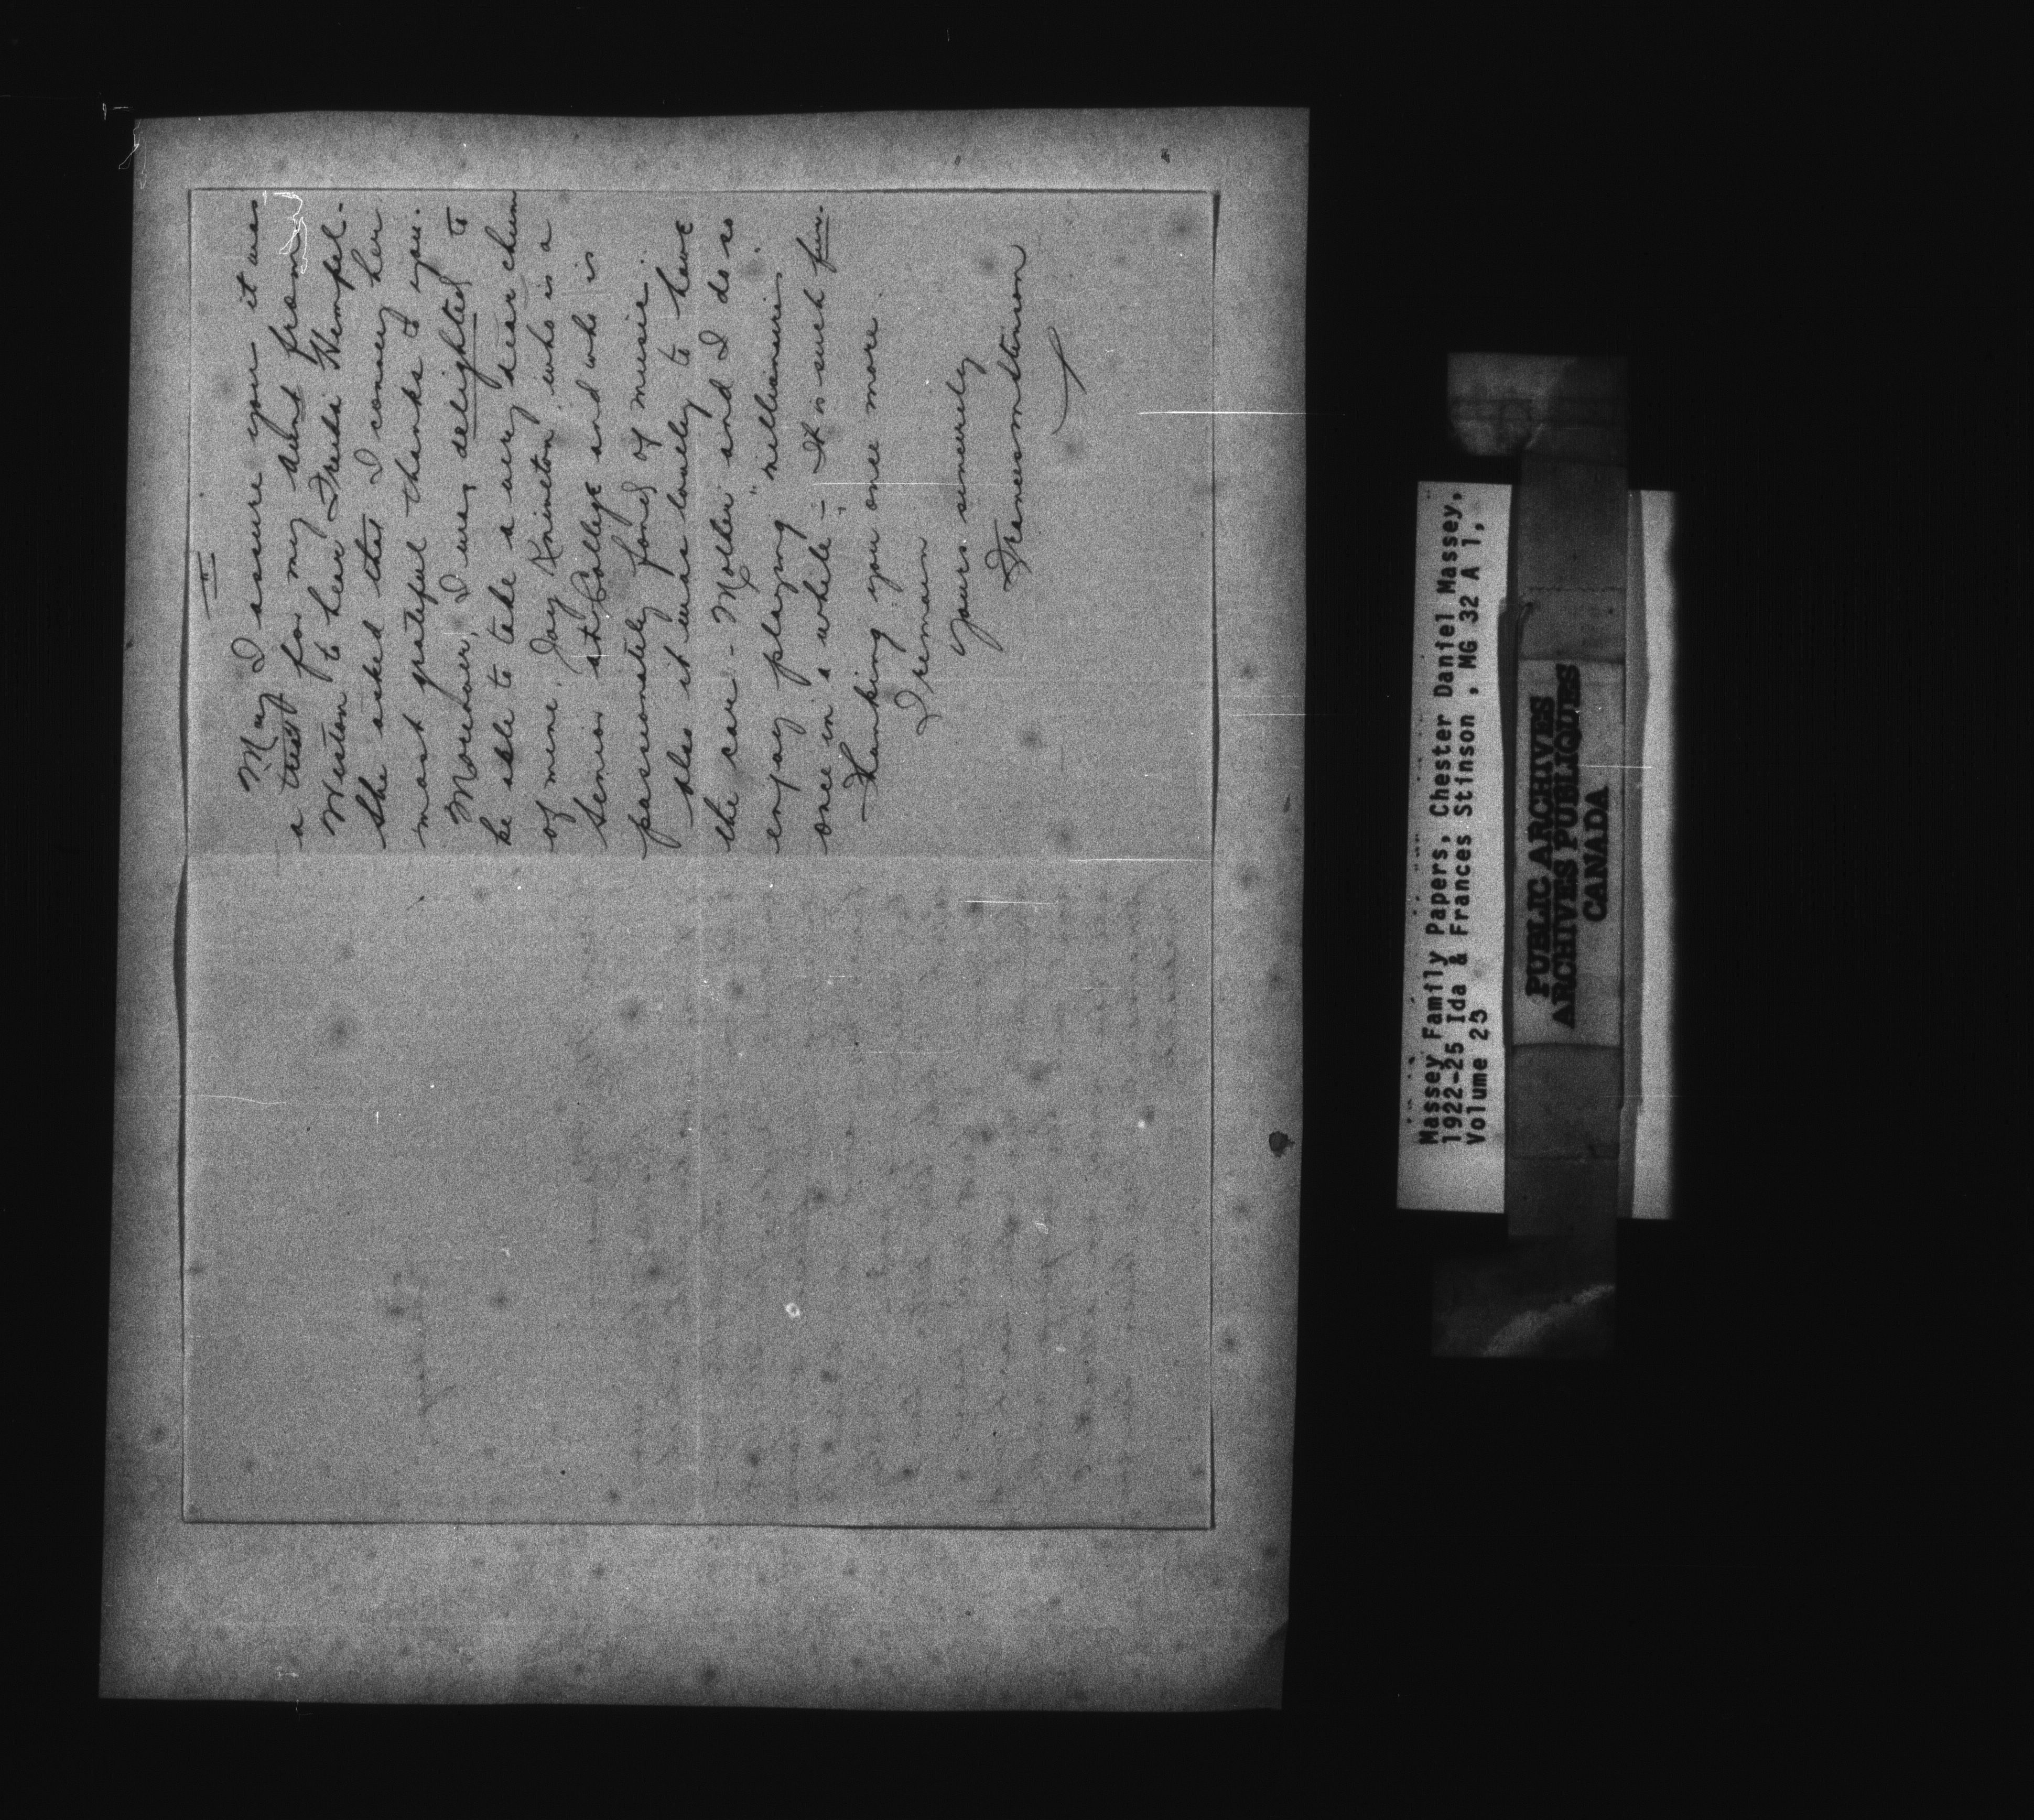 "II"
May I assure you it was
a treat for my aunt from
Weston to hear Frieda Hempel.
She asked that I convey her
most grateful thanks to you.
Moreover, I was delighted to
be able to take a very dear chum
of mine, Joy Knineton, who is a
Senior at College and who is
passionately fond of music.
Also it was lovely to have
the car - Mother and I do so
enjoy playing "millionairies"
once in a while - It is such fun.
Thanking you once more.
I remain
Yours sincerely
Frances M Stinson
Massey Family Papers, Chester Daniel Massey,
1922-25 Ida & Frances Stinson , MG 32 A 1,
Volume 23
PUBLIC ARCHIVES
ARCHIVES PUBLIQUES
CANADA